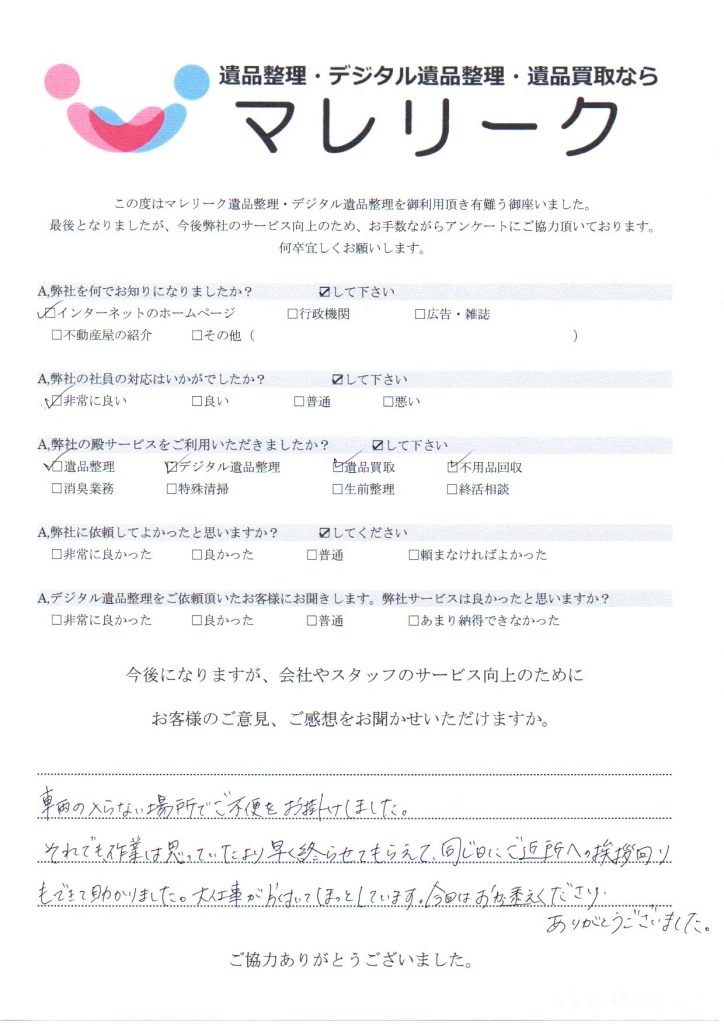 遺品整理・デジタル遺品整理・遺品買取なら
マレリーク
この度はマレリーク遺品整理・デジタル遺品整理を御利用頂き有難う御座いました。
最後となりましたが、今後弊社のサービス向上のため、お手数ながらアンケートにご協力頂いております。
何卒宜しくお願いします。
A,弊社を何でお知りになりましたか？ ☑して下さい
☑インターネットのホームページ □行政機関 □広告・雑誌
□不動産屋の紹介 □その他（ ）
A,弊社の社員の対応はいかがでしたか？ ☑して下さい
☑非常に良い □良い □普通 □悪い
A,弊社の殿サービスをご利用いただきましたか？ ☑して下さい
☑遺品整理 ☑デジタル遺品整理 ☑遺品買取 ☑不用品回収
□消臭業務 □特殊清掃 □生前整理 □終活相談
A,弊社に依頼してよかったと思いますか？ ☑してください
□非常に良かった □良かった □普通 □頼まなければよかった
A,デジタル遺品整理をご依頼頂いたお客様にお聞きします。弊社サービスは良かったと思いますか？
□非常に良かった □良かった □普通 □あまり納得できなかった
今後になりますが、会社やスタッフのサービス向上のために
お客様のご意見、ご感想をお聞かせいただけますか。
車両の入らない場所でご不便をお掛けしました。
それでも作業は思っていたより早く終らせてもらえて、同じ日にご近所への挨拶回り
もできて助かりました。大仕事が片付いてほっとしています。今回はお力添えください
ありがとうございました。
ご協力ありがとうございました。